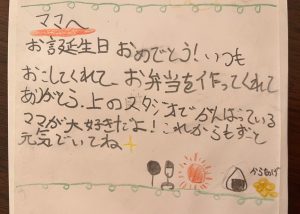 ママへ
お誕生日おめでとう!いつも
おこしてくれて、お弁当を作ってくれて
ありがとう。上のスタジオでがんばっている
ママが大好きだよ!これからもずっと
元気でいてね
からあげ